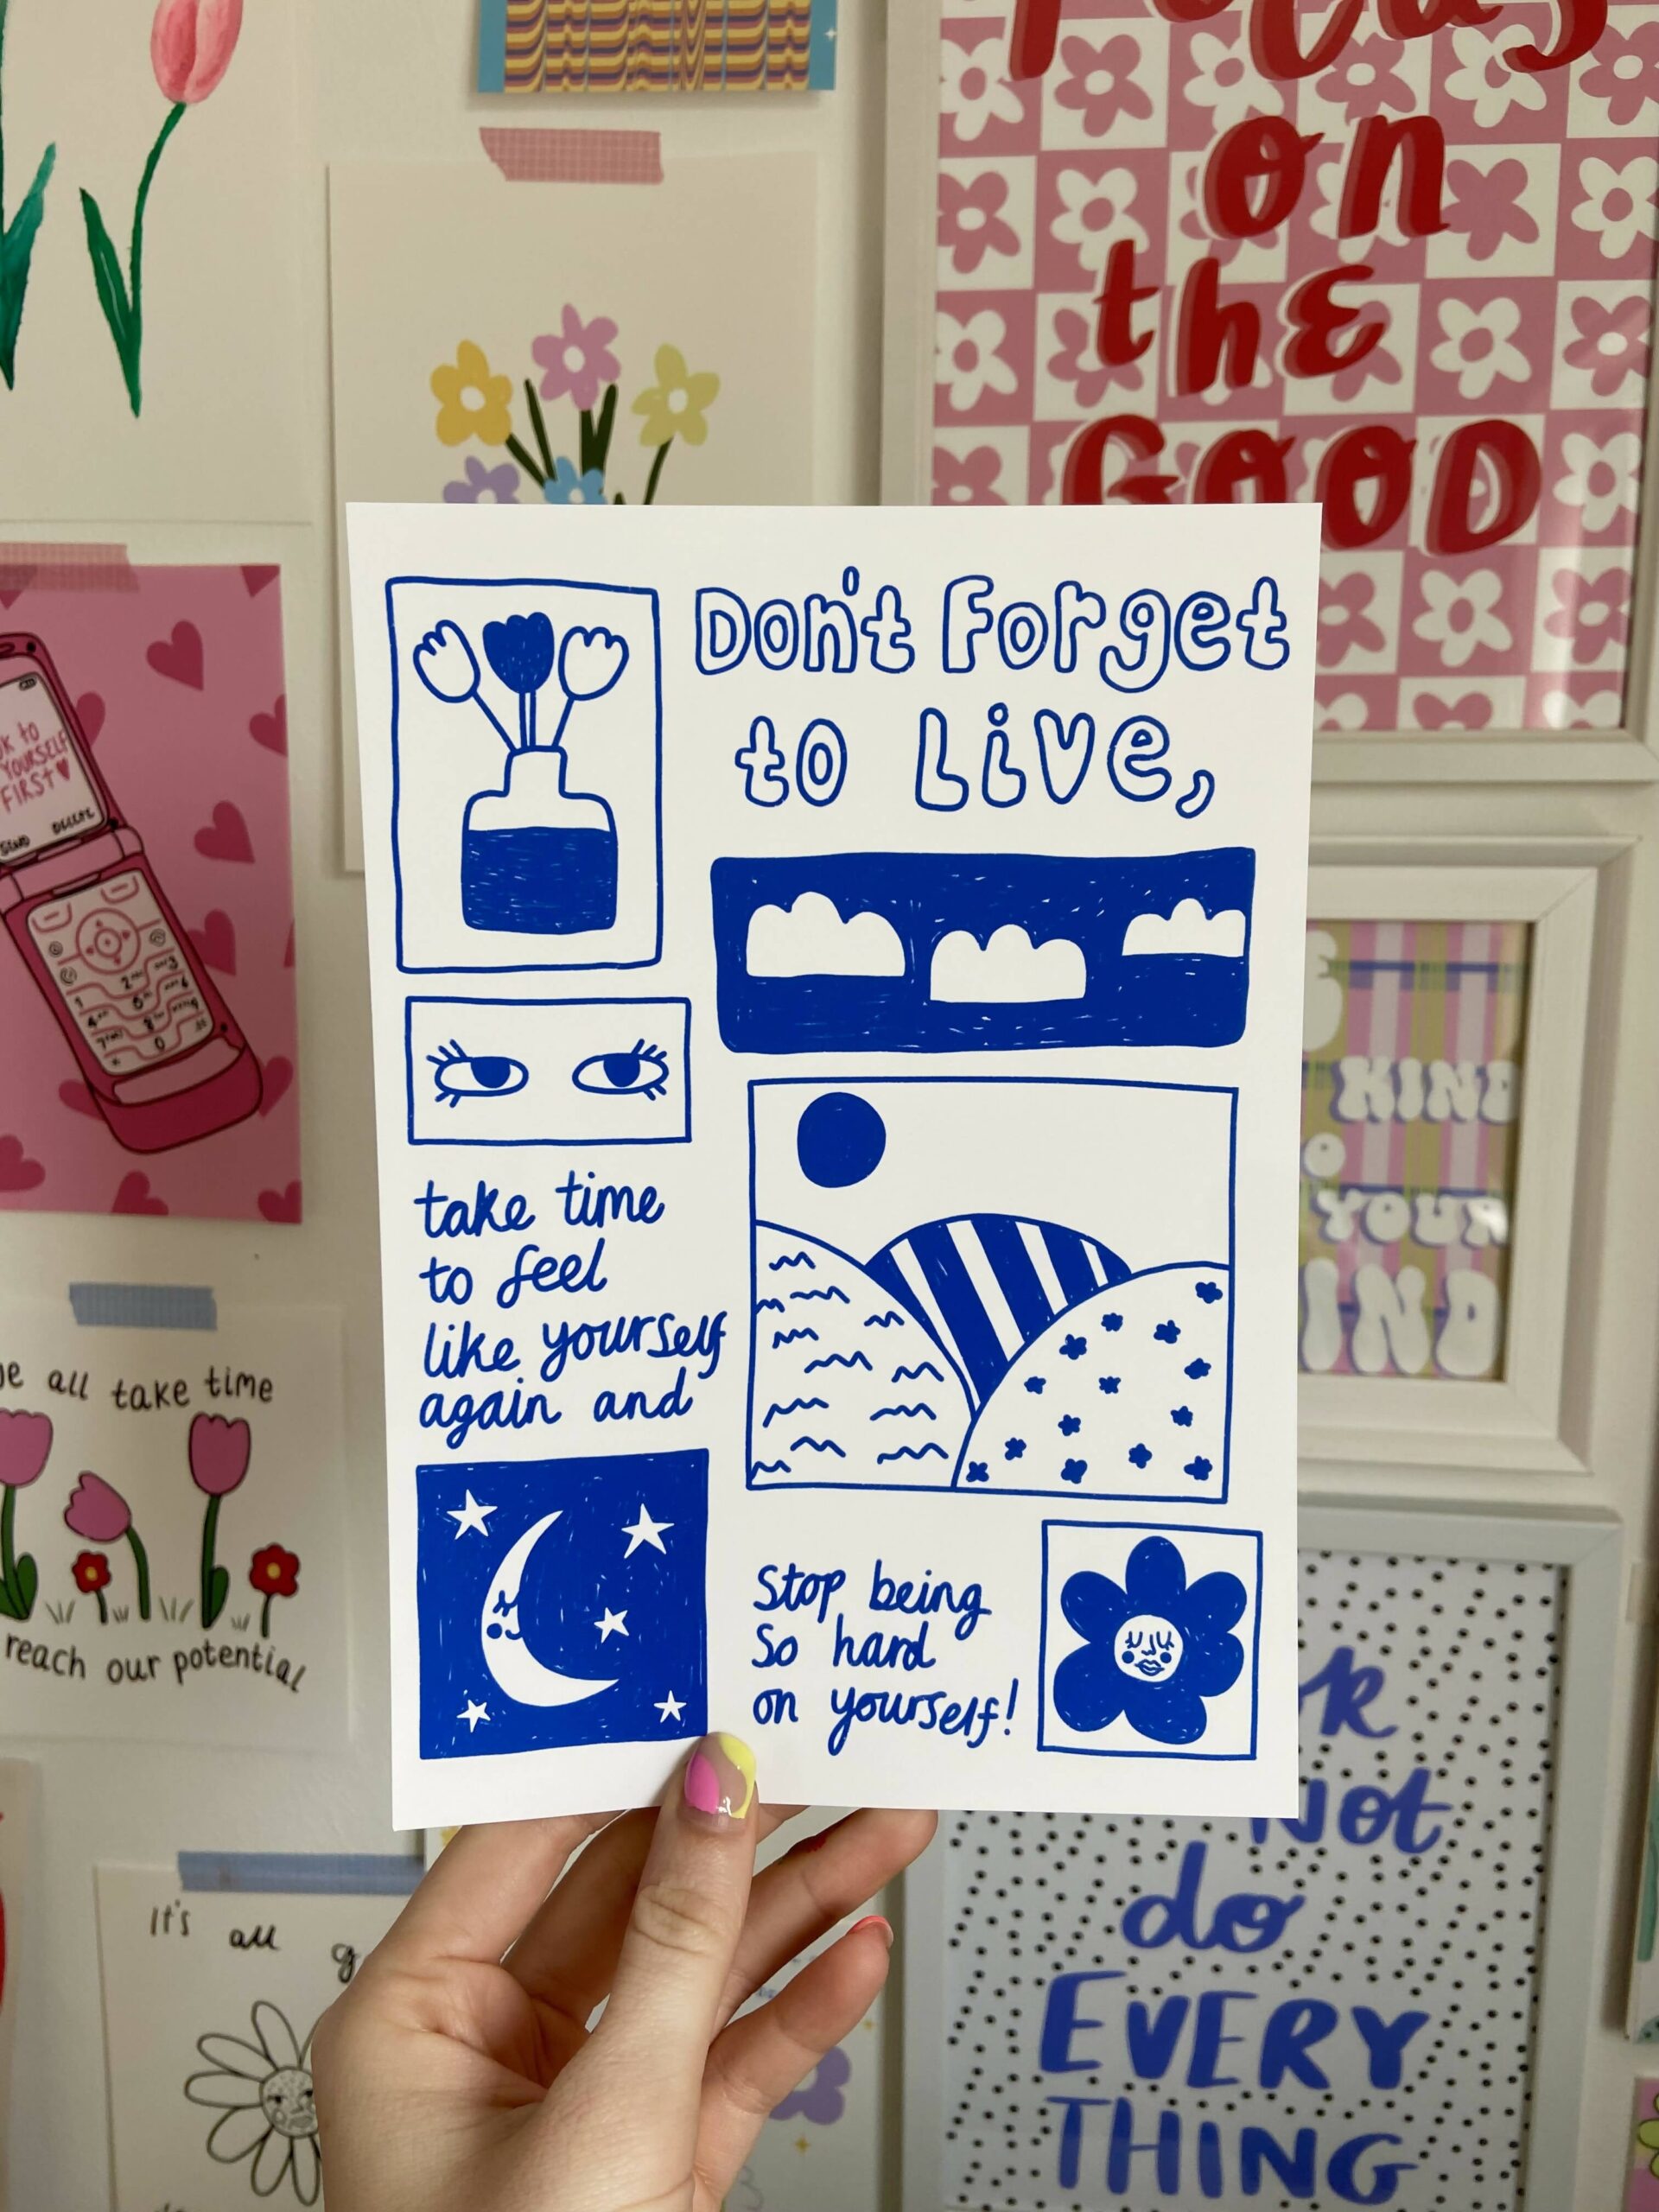 Don't Forget
to Live,
take time
to feel
like yourself
again and
Stop being
So hard
on yourself!
on
the
GOOD
TO
YOURSELF
FIRST
SEND
DELETE
all take time
reach our potential
It's all
KIND
YOUR
Not
do
EVERY
THING